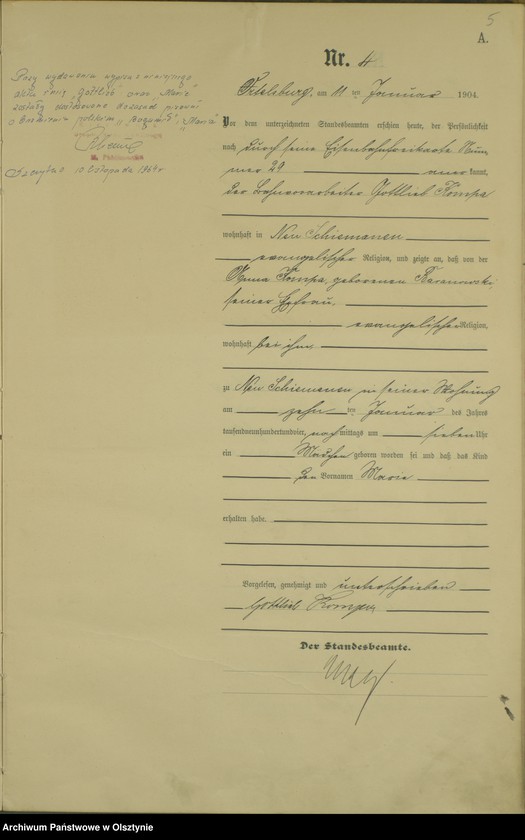 5
A.
Nr. 4
Ortelsburg, am 11 ten Januar 1904.
Vor dem unterzeichneten Standesbeamten erschien heute, der Persönlichkeit
nach durch seine Eisenbahnfreikarte Num
mer 29 anerkannt,
der Bahnarbeiter Gottlieb Kompa
wohnhaft in Neu Schiemanen
evangelischer Religion, und zeigte an, daß von der
Anna Kompa, geborenen Baranowski,
seiner Ehefrau,
evangelischer Religion,
wohnhaft bei ihm
zu Neu Schiemanen in seiner Wohnung
am zehn ten Januar des Jahres
tausendneunhundertundvier, nachmittags um sieben Uhr
ein Mädchen geboren worden sei und daß das Kind
den Vornamen Marie
erhalten habe.
Vorgelesen, genehmigt und unterschrieben
Gottlieb Kompa
Der Standesbeamte.
Przy wydawaniu wypisu niniejszego
aktu imię "Gottlieb" oraz "Marie"
"Maria"
Szczytno 10 listopada 1964 r
Archiwum Państwowe w Olsztynie